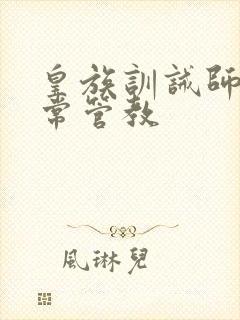 皇族訓誡師
常管教
風琳兒